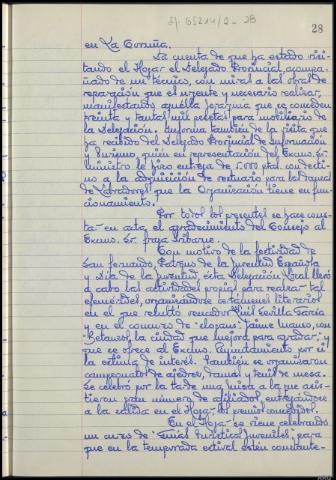 28
en La Coruña.
Da cuenta de que ha estado visi-
tando el Hogar el Delegado Provincial acompa-
ñado de un técnico, con miras a las obras de
reparación que es urgente y necesario realizar,
manifestando aquella Jerarquía que se conceden
treinta y tantas mil pesetas para mobiliario de
la Delegación. Informa también de la visita que
ha recibido del Delegado Provincial de Información
y Turismo, quien en representación del Excmo. Sr.
Ministro le hizo entrega de 5.000 ptas. con desti-
no a la adquisición de vestuario para la
de Labradores que la Organización tiene en fun-
cionamiento.
Por todos los presentes se hace cons-
tar en acta el agradecimiento del Consejo al
Excmo. Sr. Fraga Iribarne.
Con motivo de la festividad de
San Fernando, Patrono de la Juventud Española
y Día de la Juventud, esta Delegación Local llevó
a cabo las actividades propias para realzar tal
efemérides, organizándose certámenes literarios
en el que resultó vencedor Luis Sevilla García
y en el concurso de Jaime Ramos, con
"Betanzos, la ciudad que mejora para agradar" y
que se ofrece al Excmo. Ayuntamiento por si
la estima de interés. También se organizaron
campeonatos de ajedrez, damas y tenis de mesa.
Se celebró por la tarde una misa a la que asis-
tieron gran número de afiliados, entregándose
a la salida en el Hogar los premios
En el Hogar se viene celebrando
un curso de "Guías Turísticos Juveniles", para
que en la temporada estival estén constante-